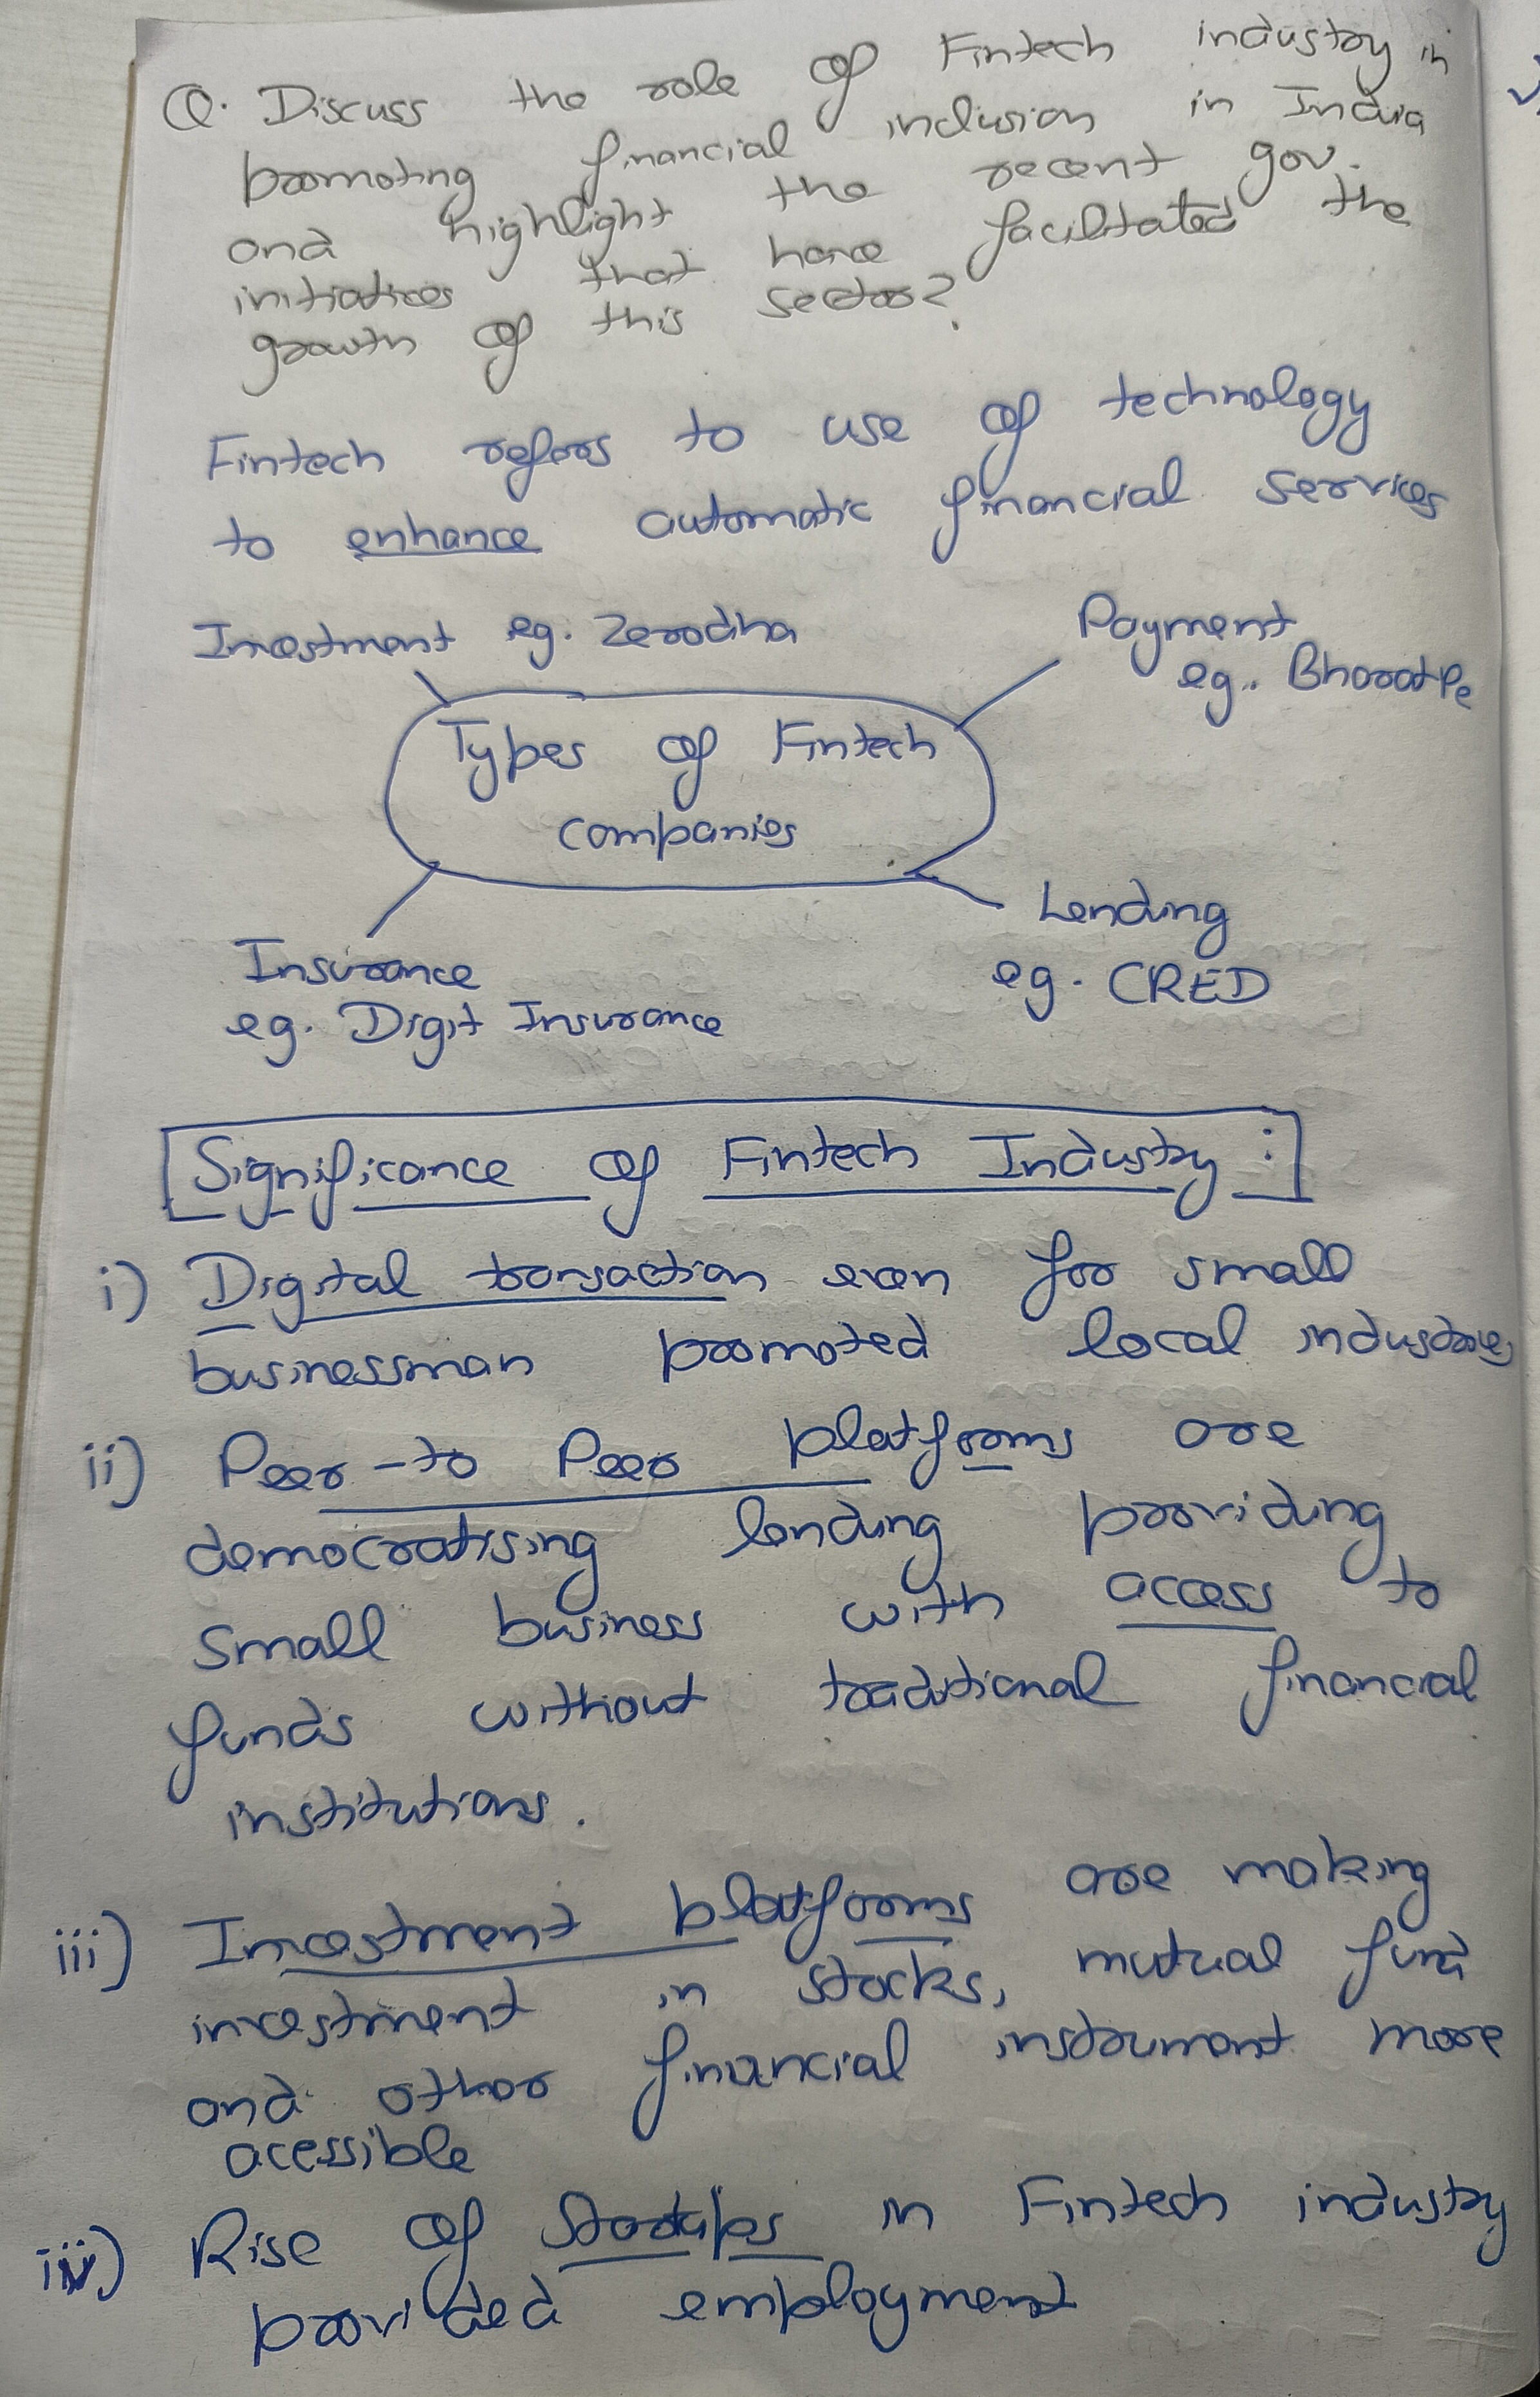 Q. Discuss the role of Fintech industry in
promoting financial inclusion in India
and highlight the recent gov.
initiatives that have facilitated the
growth of this sector?
Fintech refers to use of technology
to enhance automatic financial services
Investment eg. Zerodha
Payment
eg. BharatPe
Types of Fintech
companies
Insurance
eg. Digit Insurance
Lending
eg. CRED
Significance of Fintech Industry :
i) Digital transaction even for small
businessman promoted local industries
ii) Peer-to Peer platforms are
democratising lending providing
small business with access to
funds without traditional financial
institutions.
iii) Investment platforms are making
investment in stocks, mutual fund
and other financial instrument more
acessible
iv) Rise of Startups in Fintech industry
provided employment